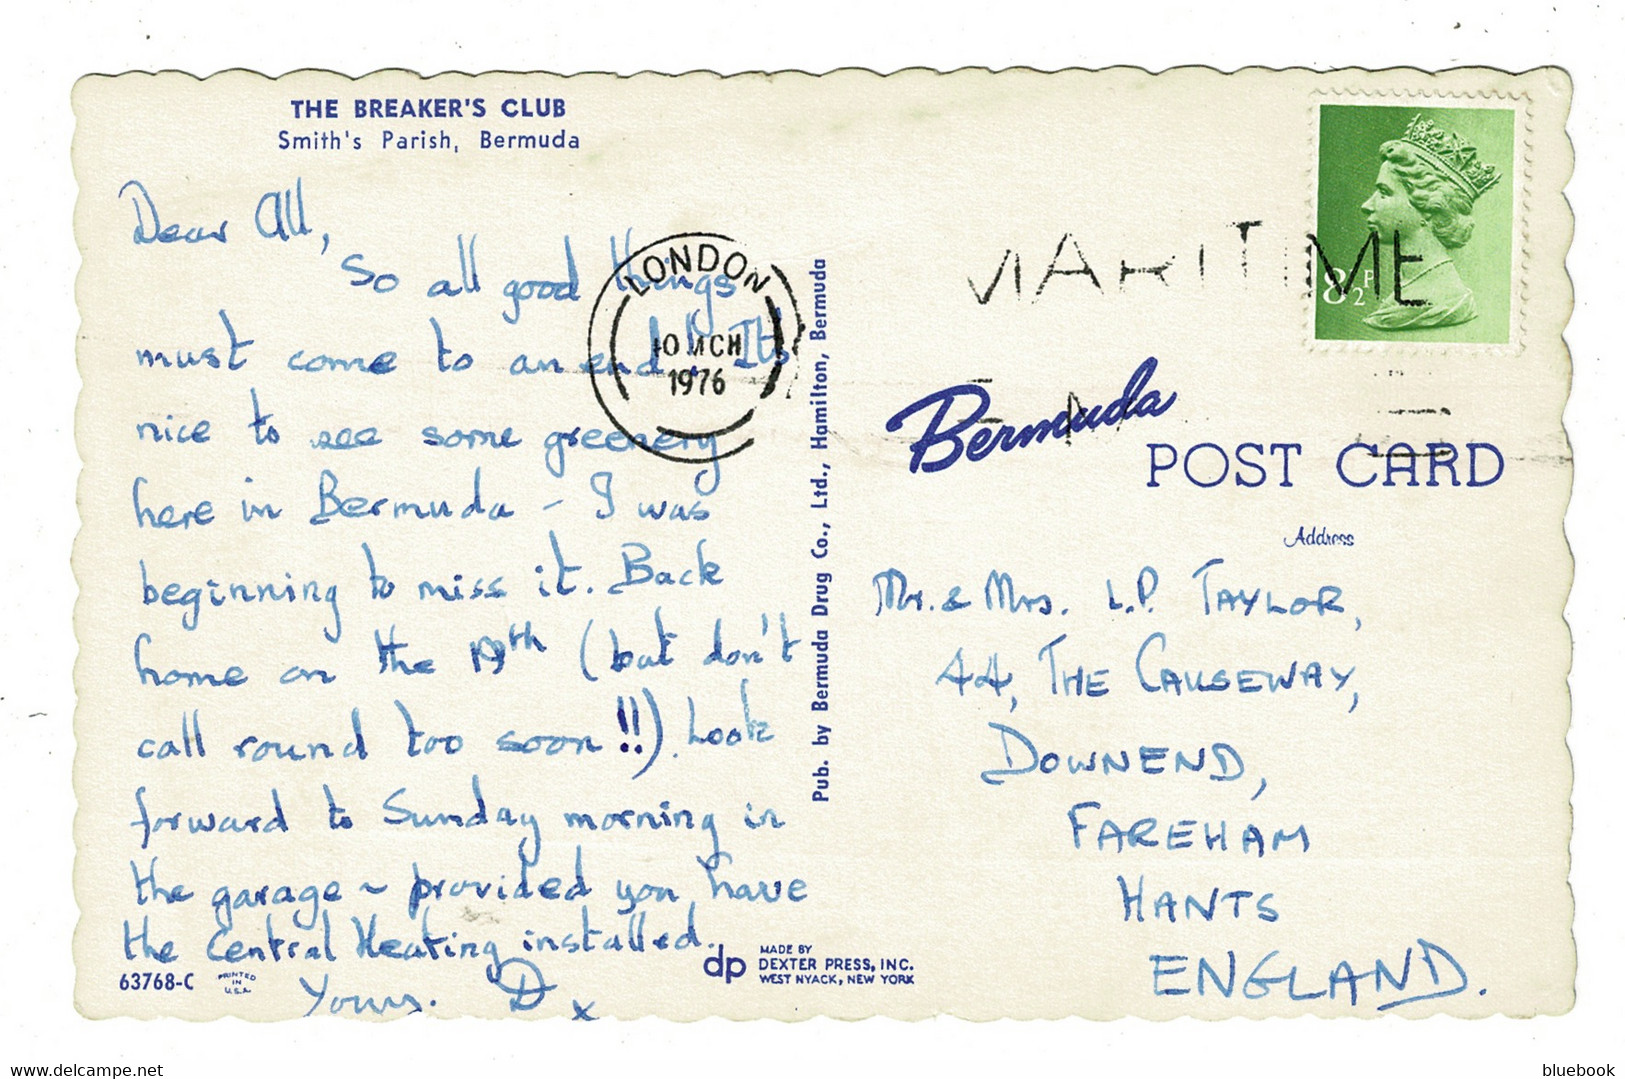 THE BREAKER'S CLUB
Smith's Parish, Bermuda
Dear All,
So all good things
must come to an end! It's
nice to see some greenery
here in Bermuda – I was
beginning to miss it. Back
home on the 19th (but don't
call round too soon!!). Look
forward to Sunday morning in
the garage ~ provided you have
the Central Heating installed.
Yours. D x
63768-C
PRINTED
IN
U.S.A.
dp
MADE BY
DEXTER PRESS, INC.
WEST NYACK, NEW YORK
Pub. by Bermuda Drug Co., Ltd., Hamilton, Bermuda
LONDON
MCH
1976
MARITIME
8½P
Bermuda
POST CARD
Address
Mr. & Mrs. L.P. TAYLOR,
44, THE CAUSEWAY,
DOWNEND,
FAREHAM
HANTS
ENGLAND.
delcampe.net
bluebook